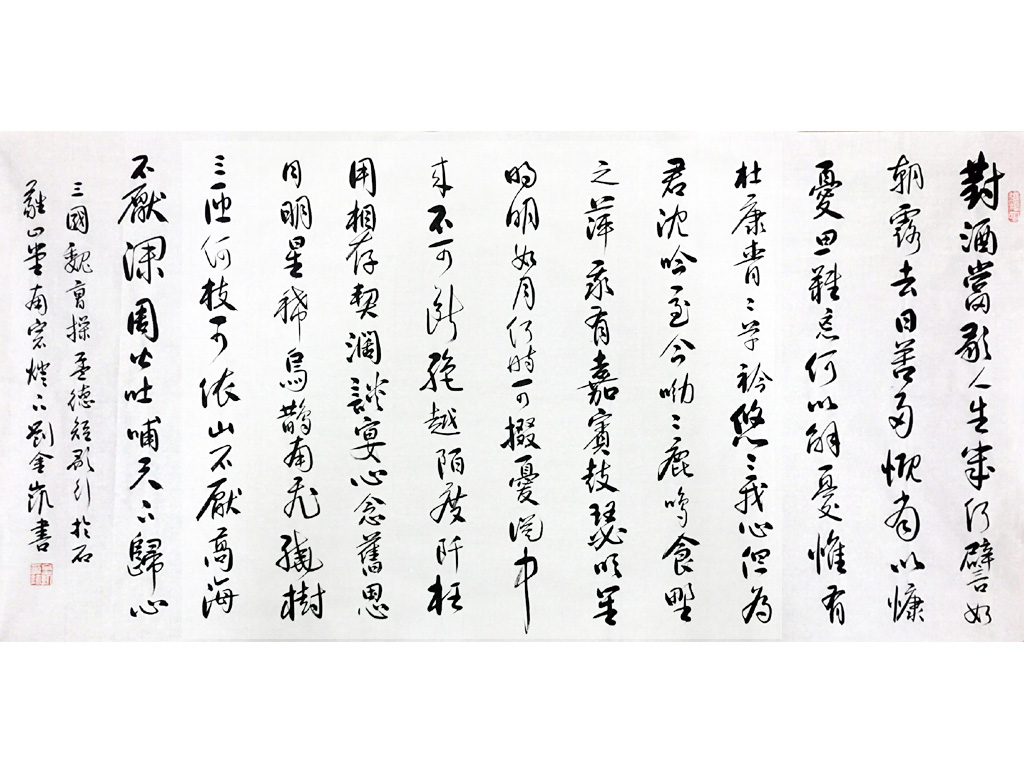 對酒當歌人生幾何譬如
朝露去日苦多慨當以慷
憂思難忘何以解憂惟有
杜康青〻子衿悠〻我心但為
君沈吟至今呦〻鹿鳴食野
之苹我有嘉賓鼓瑟吹笙
明明如月何時可掇憂從中
來不可斷絕越陌度阡枉
用相存契闊談宴心念舊恩
月明星稀烏鵲南飛繞樹
三匝何枝可依山不厭高海
不厭深周公吐哺天下歸心
三國魏曹操孟德短歌行於石
山堂南窗燈下劉金凱書